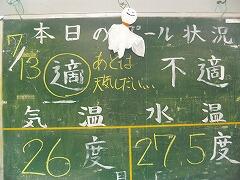 本日のプール状況
7/13 適 あとは 不適
天気しだい...
気温 水温
26度 27.5度